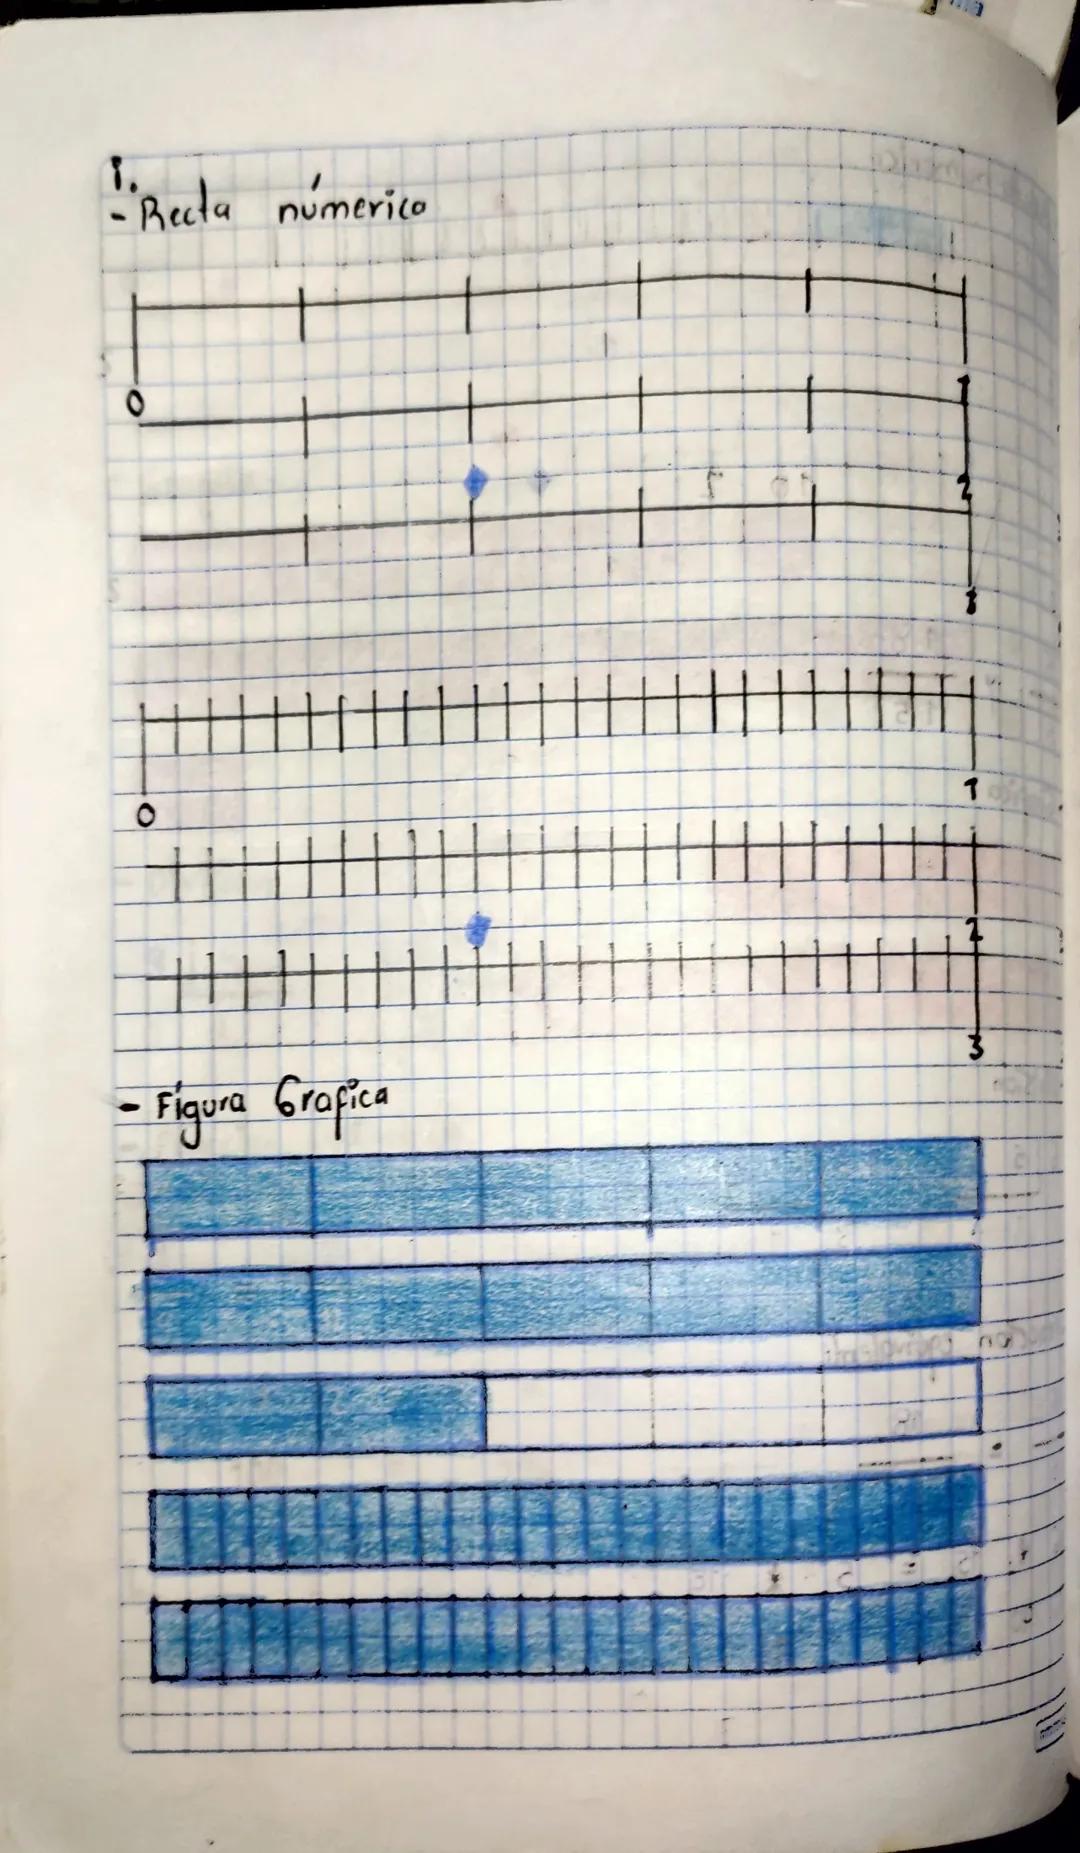 1.
- Recta númerica
0
1
2
3
0
1
2
3
- Fígura Grafica